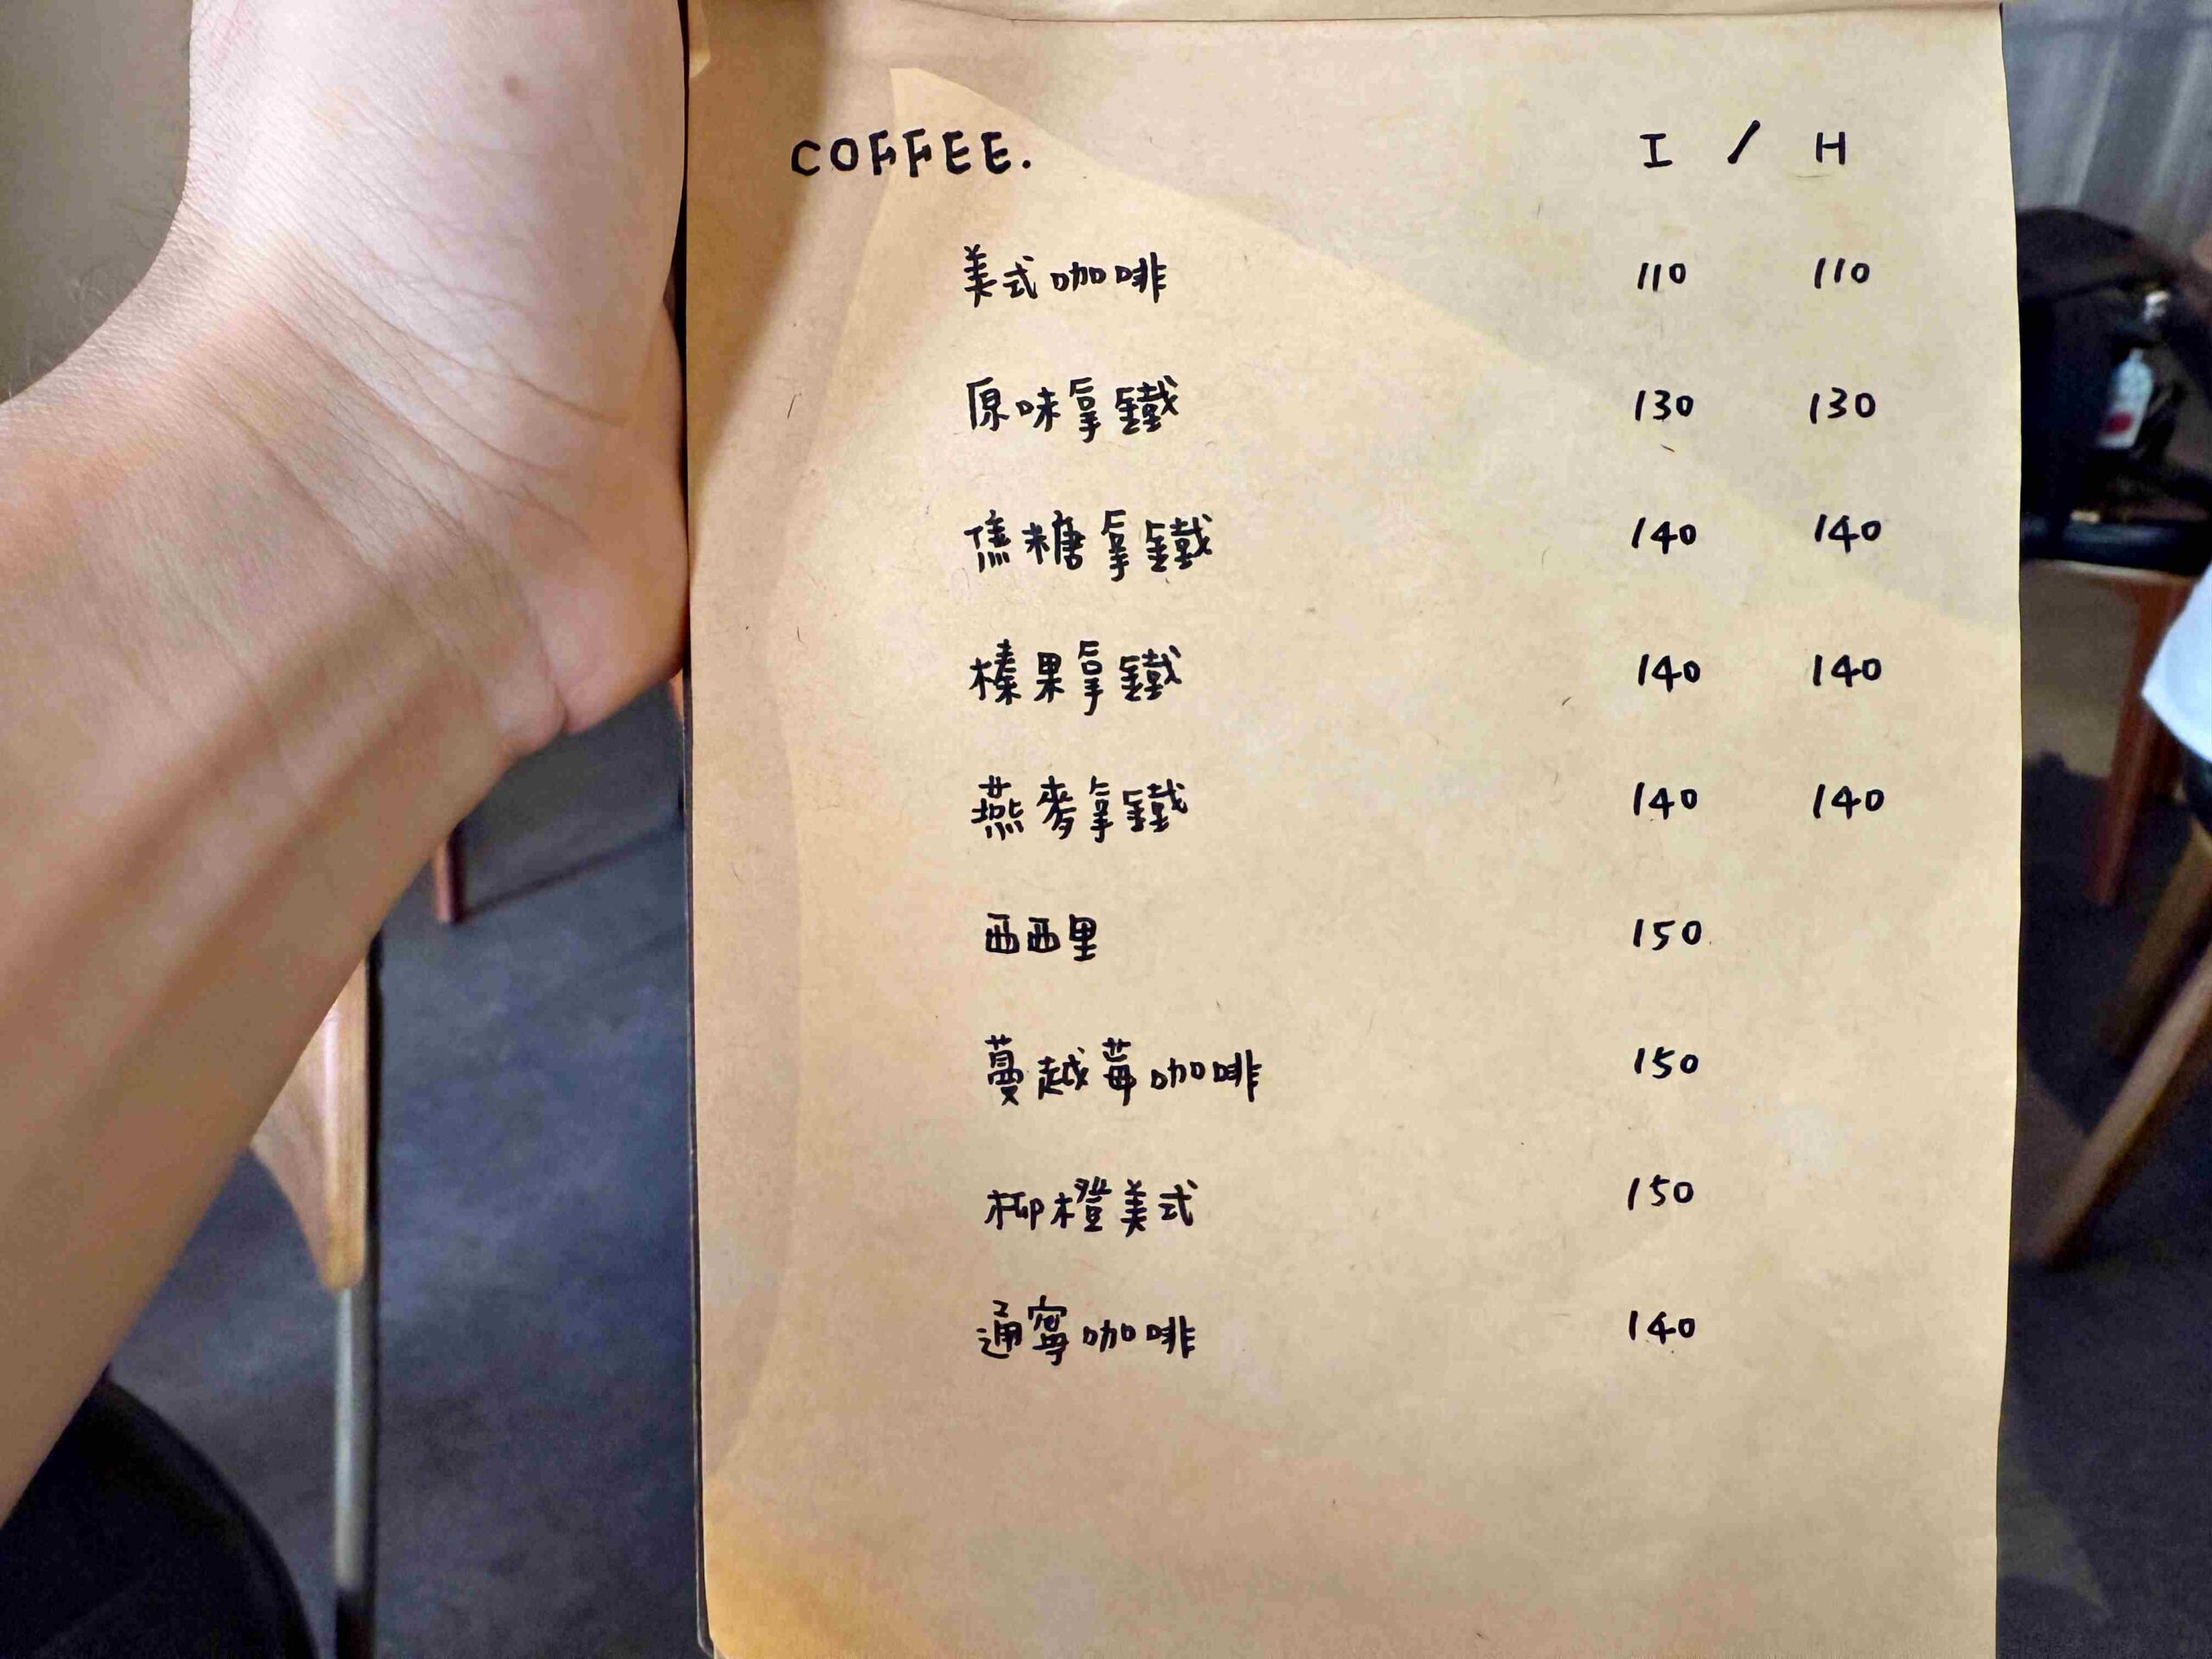 COFFEE. I / H
美式咖啡 110 110
原味拿鐵 130 130
焦糖拿鐵 140 140
榛果拿鐵 140 140
燕麥拿鐵 140 140
西西里 150
蔓越莓咖啡 150
柳橙美式 150
通寧咖啡 140